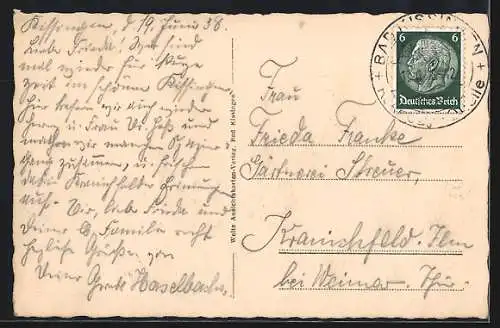 Kissingen, d 19. Juni 38.
Liebe Frieda! Wir sind
mal wieder für kurze
Zeit im schönen Kissingen
hier trafen wir auch wieder
Herrn u. Frau Dr. und
machten wir manchen
Gang zusammen, u. frischen
dabei Kranichfelder Erinnerungen
auf. Dir, liebe Frieda und
Deiner l. Familie recht
herzliche Grüße von
Deiner Grete Haselbach.
Welte Ansichtskarten-Verlag, Bad Kissingen
BAD KISSINGEN
6 6
Deutsches Reich
Frau
Frieda Franke
Gärtnerei Streuer,
Kranichfeld. Ilm
bei Weimar. Thür.